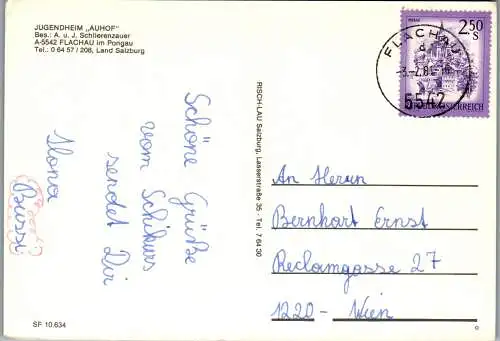 JUGENDHEIM „AUHOF"
Bes.: A. u. J. Schlierenzauer
A-5542 FLACHAU im Pongau
Tel.: 0 64 57 / 208, Land Salzburg
Schöne Grüße
vom Schikurs
sendet Dir
Ilona
Bussi
SF 10.634
RISCH-LAU Salzburg, Lasserstraße 35 - Tel. 7 64 00
2.50
S
FLACHAU
5542
An Herrn
Bernhart Ernst
Reclamgasse 27
1220- Wien